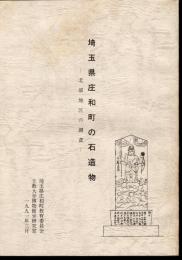 埼玉県庄和町の石造物
—北部地区の調査—
埼玉県庄和町教育委員会
立教大学博物館学研究室
一九九一年三月